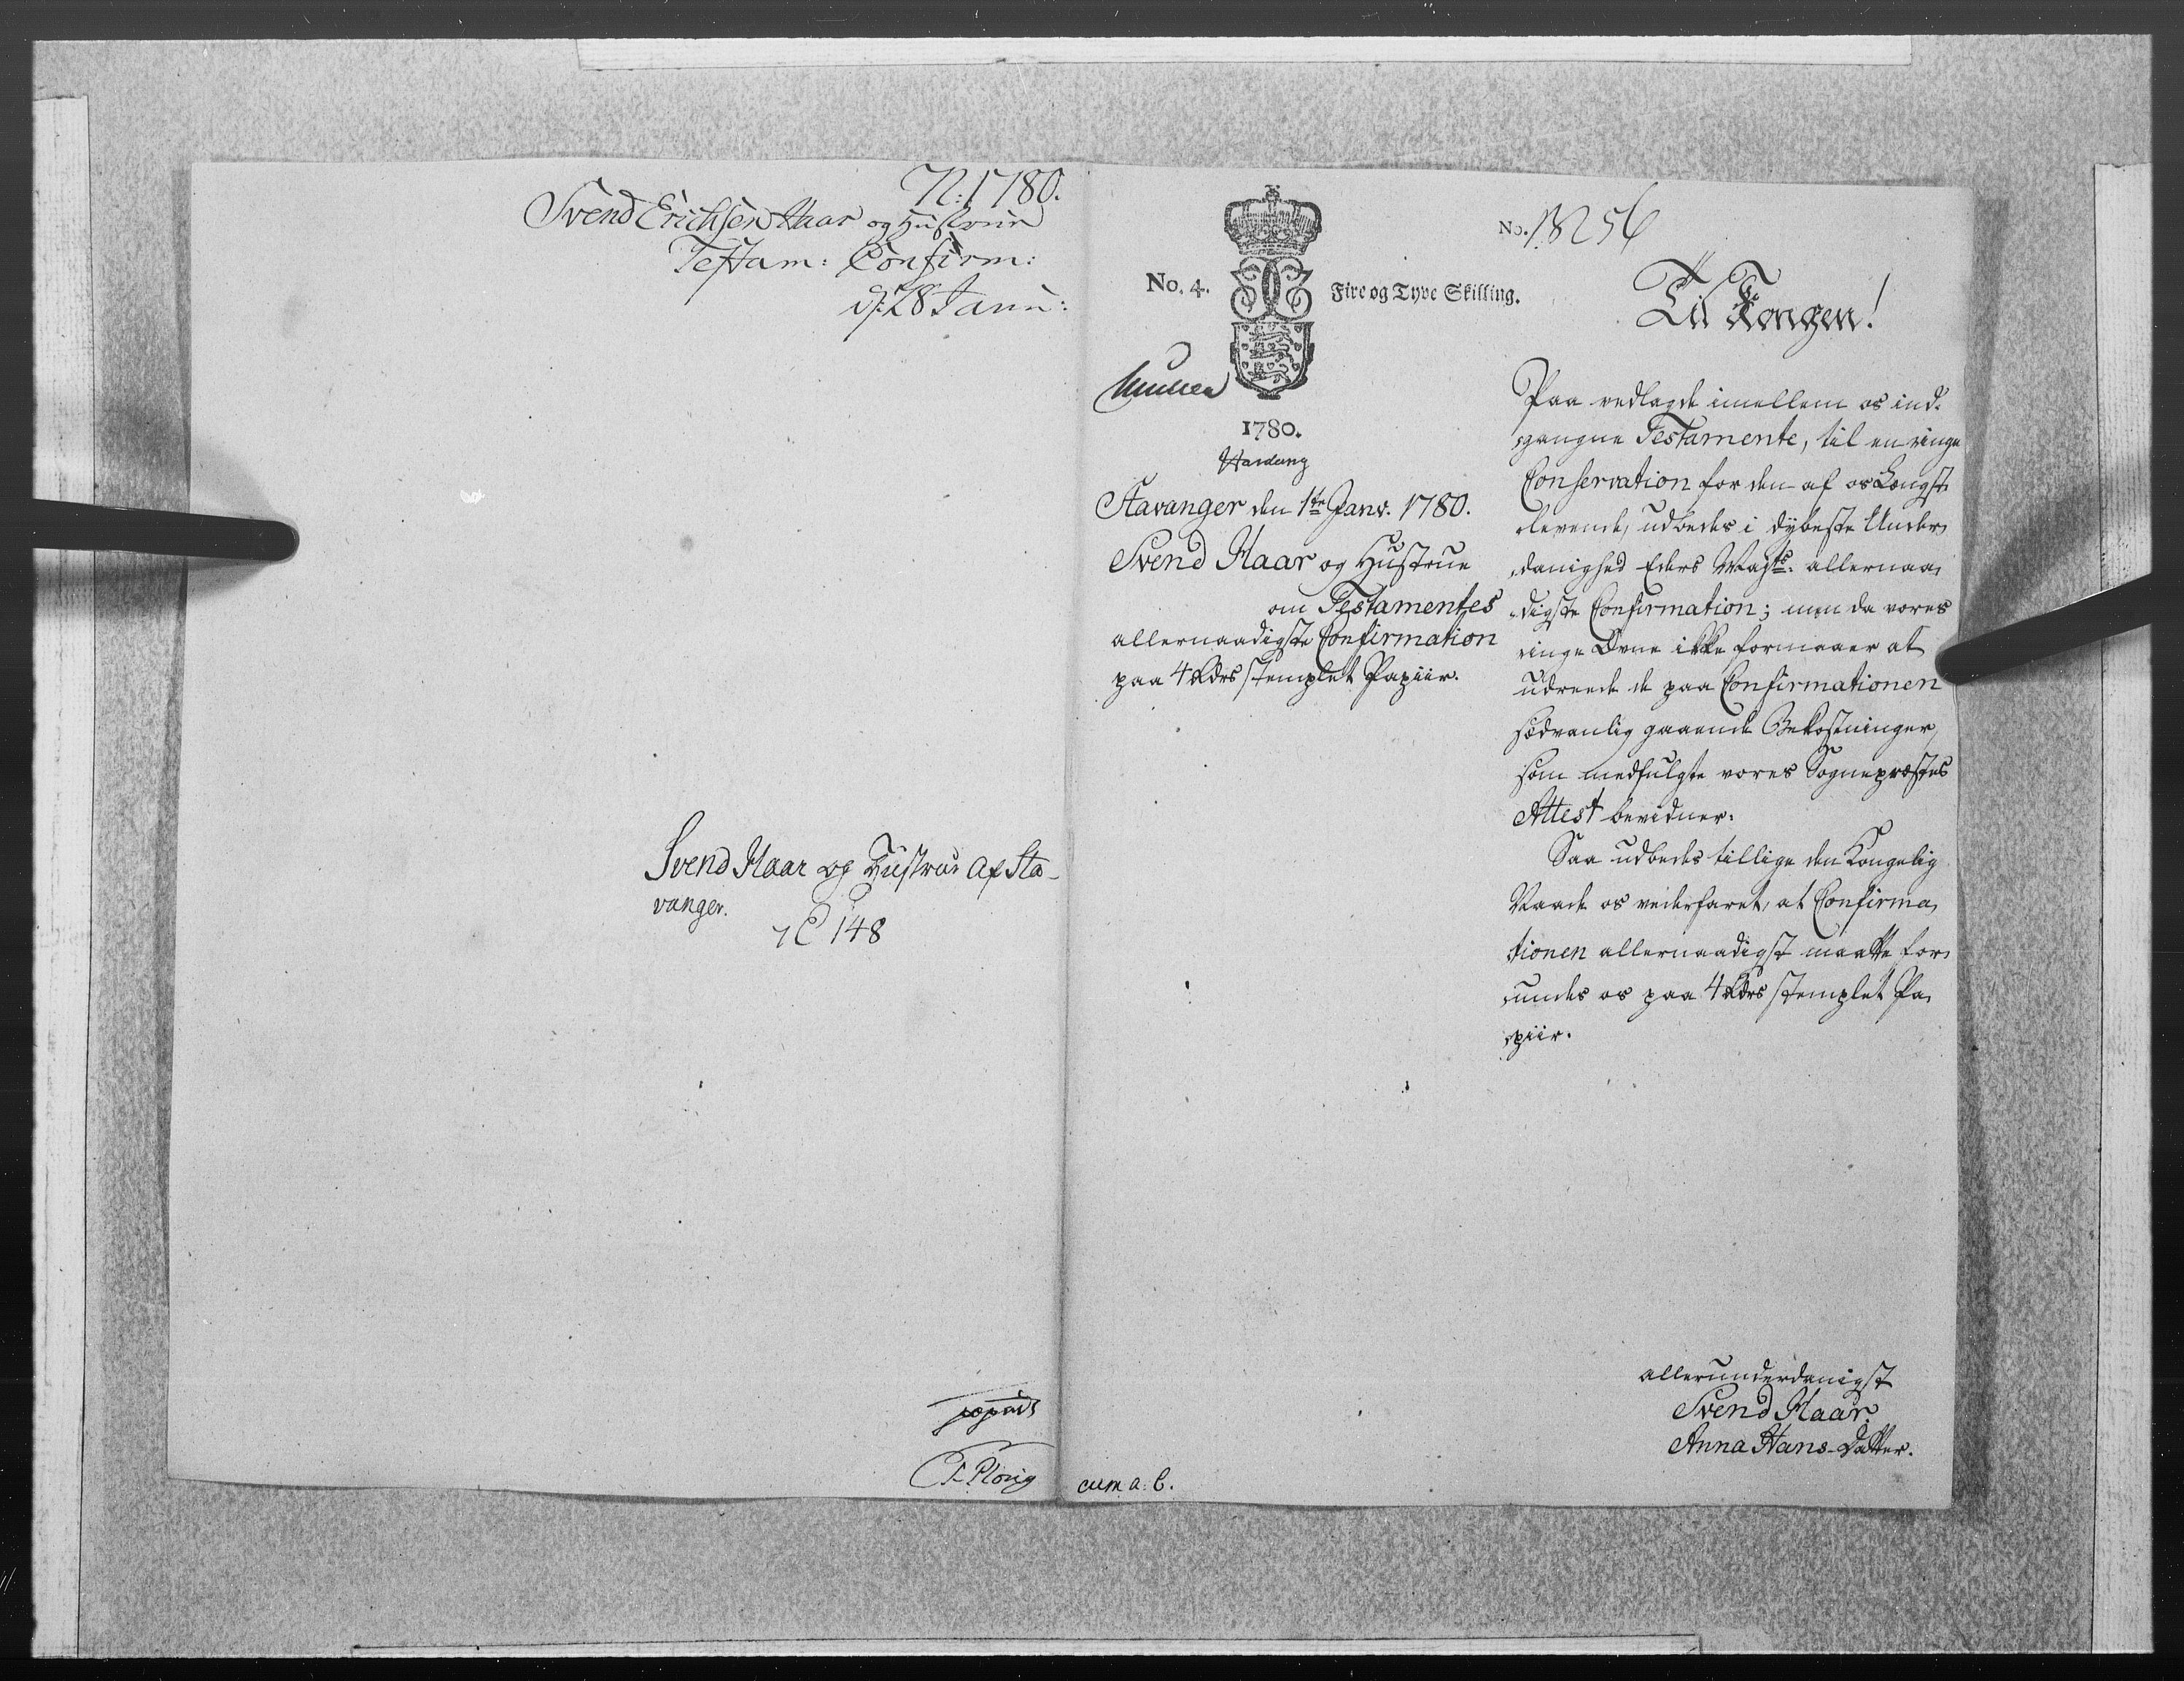 N: 1780.
Svend Erichsen Haar og Hustrue
Testam: Confirm:
d: 28 Janu:
Svend Haar og Hustrue af Sta-
vanger.
C 148
No. 4.
Fire og Tyve Skilling.
1780.
Stavanger den 1te Janv. 1780.
Svend Haar og Hustrue
om Testamentes
allernaadigste Confirmation
paa 4 Rdrs stemplet Papiir.
cum a: b.
No. 18256
Til Kongen!
Paa vedlagde imellem os ind-
gangne Testamente, til en ringe
Conservation for den af os Længst-
levende, udbedes i dybeste Under-
danighed Eders Mayts. allernaa-
digste Confirmation; men da vores
ringe Evne ikke formaaer at
udreede de paa Confirmationen
sædvanlig gaaende Bekostninger,
som medfulgte vores Sognepræstes
Attest bevidner.
Saa udbedes tillige den Kongelig
Naade os vederfaret, at Confirma-
tionen allernaadigst maatte for-
undes os paa 4 Rdrs stemplet Pa-
piir.
allerunderdanigst
Svend Haar.
Anna Hans-Datter.